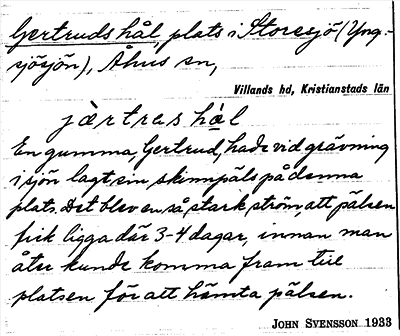 Gertruds hål, plats i Storesjö (Yng-
sjösjön), Åhus sn,
Villands hd, Kristianstads län
jàrtras hål
En gumma, Gertrud, hade vid grävning
i sjön lagt sin skinnpäls på denna
plats. Det blev en så stark ström, att pälsen
fick ligga där 3-4 dagar, innan man
åter kunde komma fram till
platsen för att hämta pälsen.
JOHN SVENSSON 1933